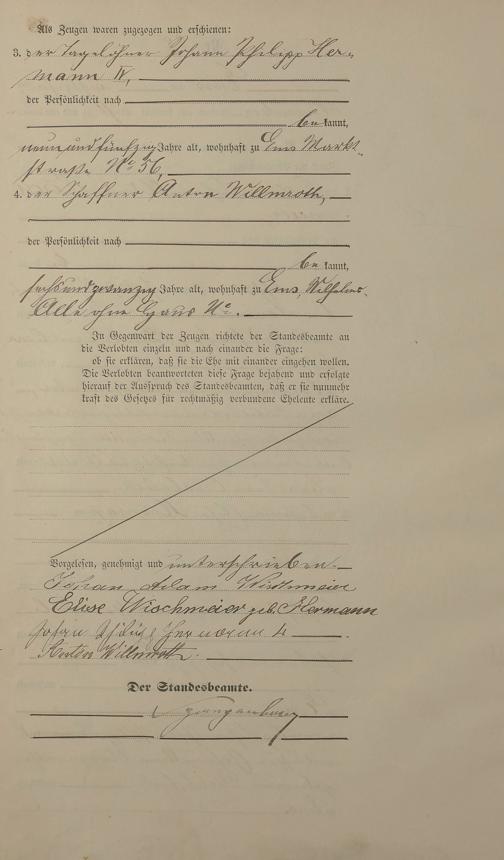 Als Zeugen waren zugezogen und erschienen:
3. der Tagelöhner Johann Philipp Her-
mann IV,
der Persönlichkeit nach
bekannt,
neunundfünfzig Jahre alt, wohnhaft zu Ems Markt-
straße No 56,
4. der Schaffner Anton Willmroth,
der Persönlichkeit nach
bekannt,
sechsundzwanzig Jahre alt, wohnhaft zu Ems, Wilhelms-
Alle ohne Haus No.
In Gegenwart der Zeugen richtete der Standesbeamte an
die Verlobten einzeln und nach einander die Frage:
ob sie erklären, daß sie die Ehe mit einander eingehen wollen.
Die Verlobten beantworteten diese Frage bejahend und erfolgte
hierauf der Ausspruch des Standesbeamten, daß er sie nunmehr
kraft des Gesetzes für rechtmäßig verbundene Eheleute erkläre.
Vorgelesen, genehmigt und unterschrieben.
Johan Adam Wischmeier
Elise Wischmeier geb. Hermann
Johan Philipp Hermann 4
Anton Willmroth.
Der Standesbeamte.